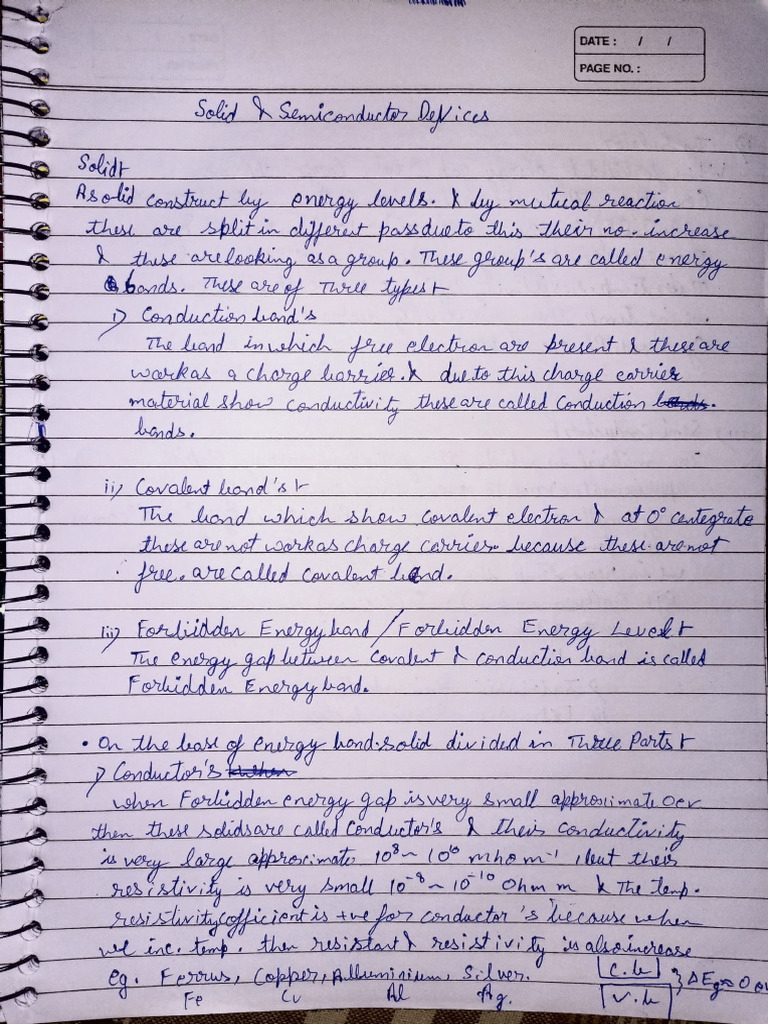 DATE : / /
PAGE NO. :
Solid & Semiconductor Devices
Solid⊢
A solid construct by energy levels. & by mutual reaction
these are split in different pass due to this their no. increase
& these are looking as a group. These group's are called energy
bands. These are of Three types⊢
i) Conduction band's
The band in which free electron are present & these are
work as a charge barrier. & due to this charge carrier
material show conductivity these are called Conduction bands.
bands.
ii) Covalent band's⊢
The band which show covalent electron & at 0° centegrate
these are not work as charge carrier. because these are not
free. are called covalent band.
iii) Forbiidden Energy band / Forbidden Energy Level⊢
The energy gap between Covalent & conduction band is called
Forbidden Energy band.
• On the base of energy band. solid divided in Three Parts⊢
i) Conductor's
when Forbidden energy gap is very small approximate 0ev
then these solids are called Conductor's & their conductivity
is very large approximate 10⁸ ~ 10¹⁰ mho m⁻¹, but their
resistivity is very small 10⁻⁸ ~ 10⁻¹⁰ Ohm m & The temp.
resistivity cofficient is +ve for conductor's because when
we inc. temp. then resistant & resistivity is also increase
eg. Ferrus, Copper, Alluminium, Silver.
Fe Cu Al Ag.
C.b
V.b
} ΔEg≈0 ev